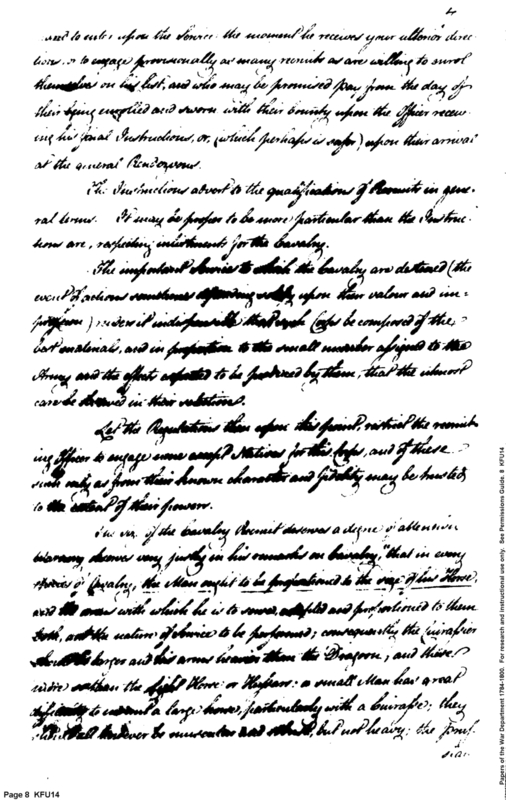 4
and to enter upon the Service the moment he receives your ulterior direc-
tions, or to engage provisionally as many recruits as are willing to enrol
themselves on his list, and who may be promised pay from the day of
their being enrolled and sworn with their bounty upon the Officer receiv-
ing his final Instructions, or, (which perhaps is safer) upon their arrival
at the general Rendezvous.
The Instructions advert to the qualifications of Recruits in gene-
ral terms. It may be proper to be more particular than the Instruc-
tions are, respecting inlistments for the Cavalry.
The important Service to which the Cavalry are destined (the
event of actions sometimes depending solely upon their valour and im-
pression) renders it indispensible that such Corps be composed of the
best materials, and in proportion to the small number assigned to the
Army and the effects expected to be produced by them, that the utmost
care be showed in their selection.
Let the Regulations then upon this point, restrict the recruit-
ing Officer to engage none except Natives for this Corps, and of these
such only as from their known character and fidelity may be trusted
to the extent of their powers.
The size of the Cavalry Recruit deserves a degree of attention
Warnery, observes very justly in his remarks on Cavalry "that in every
species of Cavalry, the Man ought to be proportioned to the size of his Horse,
and the arms with which he is to serve, adapted and proportioned to them
both, and the nature of Service to be performed; consequently the Cuirassier
should be larger and his arms heavier than the Dragoon, and these
more so than the light Horse or Hussar: a small Man has great
difficulty to mount a large horse, particularly with a Cuirasse; they
should all however be muscular and robust, but not heavy; the Prus-
sian
Page 8 KFU14
Papers of the War Department 1784-1800. For research and instructional use only. See Permissions Guide. 8 KFU14